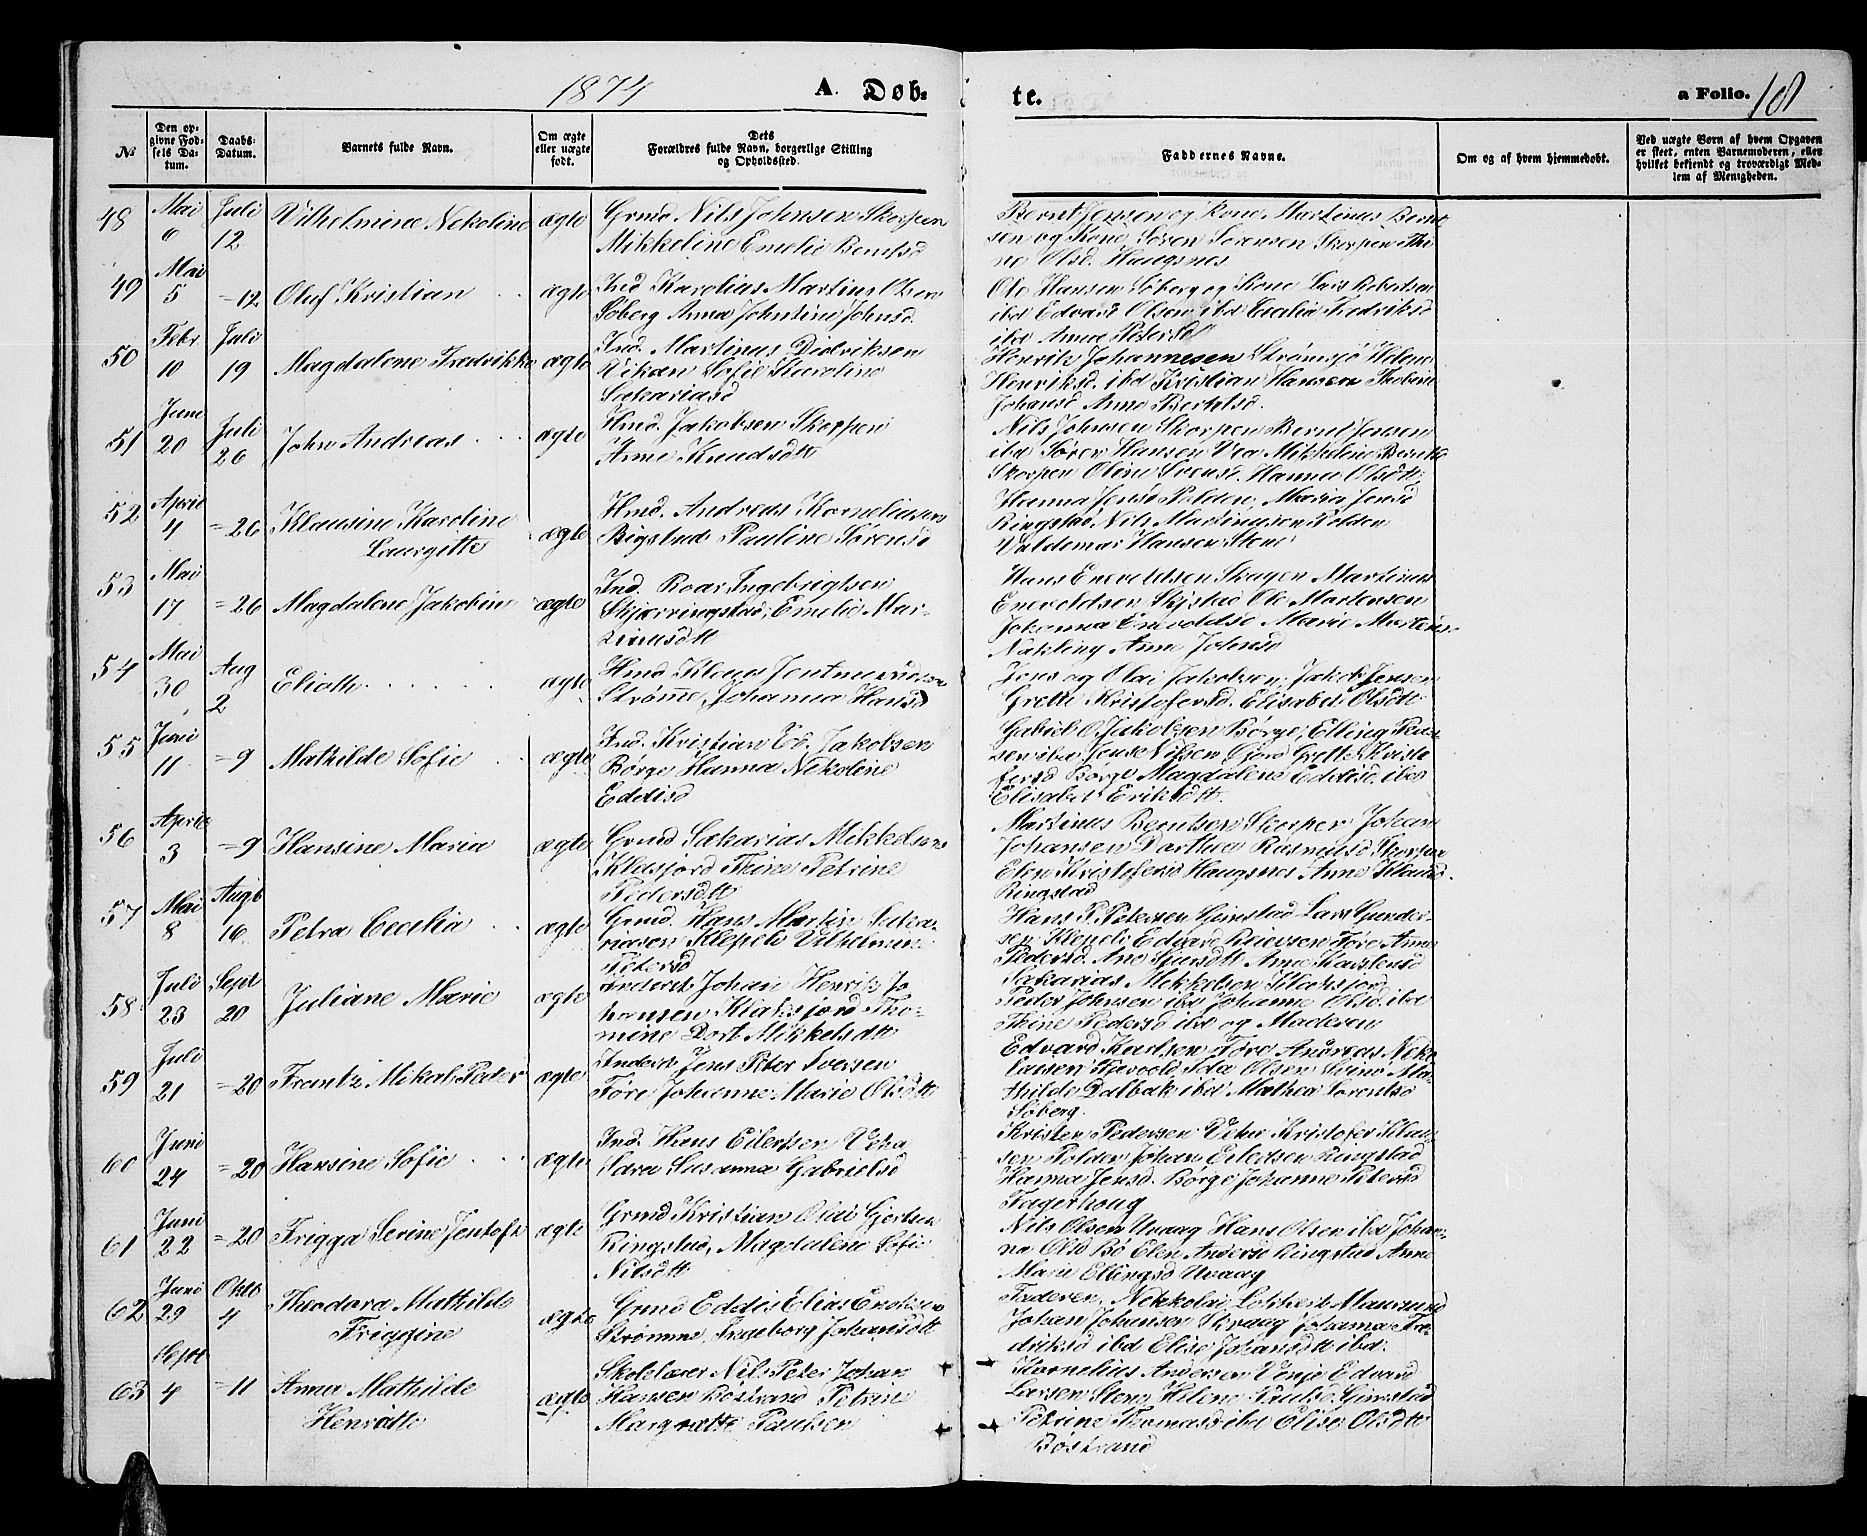 1874
A. Døb-
te.
a Folio. 101
№
Den op-
givne Fød-
sels Da-
tum.
Daabs-
Datum.
Barnets fulde Navn.
Om ægte
eller uægte
født.
Dets
Forældres fulde Navn, borgerlige Stilling
og Opholdssted.
Faddernes Navne.
Om og af hvem hjemmedøbt.
Ved uægte Børn af hvem Opgaven
er skeet, enten Barnemoderen, eller
hvilket bekjendt og troværdigt Med-
lem af Menigheden.
48 Mai 6 Juli 12 Vilhelmine Nekoline ægte
Grmd Nils Johnsen Skorpen
Mikkeline Emelie Berntsd
Bernt Jensen og Kone Martinus Bernt
sen og Kone, Søren Sørensen Skorpen
Olsd. Haugsnes
49 Mai 5 =12 Oluf Kristian ægte
Ind Karolius Martin Olsen
Søberg Anna Johnsine Johnsd.
Ole Hansen Søberg og Kone Lars Robertsen
ibd Edvard Olsen ibd Cecilia Fredriksd
ibd Anne Petersd
50 Febr. 10 Juli 19 Magdalene Fredrikke ægte
Ind. Martinus Didriksen
Vikan Sofie Karoline
Sakariasd
Henrik Johannesen Strømsjø Helene
Henriksd. ibd Kristian Hansen
Johansd Anne Berntsd.
51 Juni 20 Juli 26 John Andreas ægte
Hmd. Jakobsen Skorpen
Anne Knudsdtt
Nils Johnsen Skorpen Bernt Jensen
ibd Søren Hansen Mikkeline Berntsd
Skorpen Oline Hanna Olsdtt
52 April 4 =26 Klausine Karoline
Laurgitte ægte
Hmd. Andreas Korneliusen
Rigstad Pauline Sørensd
Hanna Jensd Polden, Maria Jensd
Ringstad, Nils Martinusen Polden
Valdemar Hansen Stene
53 Mai 17 =26 Magdalene Jakobine ægte
Ind. Roar Ingebrigtsen
Skjærringstad, Emelie Mar-
tinusdtt
Hans Enevoldsen Skagen Martinus
Enevoldsen Ole Martensen
Johanna Enevoldsd Marie Martens
Anne Johnsd
54 Mai 30 Aug 2 Elioth ægte
Hmd Klaus
Strømme, Johanna Hansd
Jens og Olai Jakobsen, Jakob Jensen
Grette Kristofersd. Elisabet Olsdtt
55 Juni 11 =9 Mathilde Sofie ægte
Ind. Kristian Ed. Jakobsen
Børge Hanna Nikoline
Eddisd
Gabriel O. Jakobsen Børge, Elling
sen ibd Jens Nilsen Grette Kristo
fersd Børge Magdalene Eddisd. ibd
Elisabet Eriksdtt.
56 April 3 =9 Hansine Maria ægte
Grmd Sakarias Mikkelsen
Klaksjord Thine Petrine
Pedersdtt
Martinus Berntsen Skorpen Johan
Johansen Dorthea Rasmusd Skorpen
Elen Kristofersd Haugsnes Anne
Ringstad
57 Mai 8 Augb 16 Petra Cecilia ægte
Grmd. Hans Martin Saka-
riasen Klepele Vilhelmine
Petersd
Hans P. Petersen Gimstad Lars Gunder-
sen Klepele Edvard Reiersen Føre Anne
Pedersd. Ane Anne Karstensd
58 Juli 23 Sept 20 Juliane Marie ægte
Inderst Johan Henrik Jo
hansen Klaksjord Tho-
mine Dort. Mikkelsdtt
Sakarias Mikkelsen Klaksjord
Peder Johnsen ibd Johanne Olsd. ibd
Thine Pedersd ibd og Moderen
59 Juli 21 =20 Frantz Mikal Peder ægte
Inderst Jens Peter Iversen
Føre Johanne Marie Olsdtt
Edvard Karlsen Føre Andreas Niko
laisen Ida Olsen Ma-
thilde Dalbak ibd Mathea Sørentsd
Søberg.
60 Juni 24 =20 Hansine Sofie ægte
Ind. Hans Eilertsen Vika
Sara Susanna Gabrielsd
Kristen Pedersen Vika Kristofer Klau-
sen Polden Johan Eilertsen Ringstad
Hanna Jensd. Børge Johanne Petersd
Fagerhoug
61 Juni 22 =20 Frigga Serine Jentoft ægte
Grmd Kristian Olai Gjertsen
Ringstad, Magdalene Sofie
Nilsdtt
Nils Olsen Uvaag Hans Olsen ibd Johan-
na Olsd Bø Elen Andersd Ringstad Anne
Marie Ellingsd Uvaag
62 Juni 29 Oktb 4 Theodora Mathilde
Friggine ægte
Grmd Eddis Elias Enoksen
Strømme, Ingeborg Johansdtt
Faderen, Nekkolai Lokkert Maursund
Johan Johansen Kraag Johanna Fre-
driksd ibd Elise Johansdtt ibd.
63 Sept 4 =11 Anna Mathilde
Henritte ægte
Skolelærer Nils Peter Johan
Hansen Bøstrand Petrine
Margrette Paulsen
Kornelius Andersen Venje Edvard
Larsen Stene Helene Paulsd Gimstad
Petrine Thomasd ibd Elise Olsdtt
Bøstrand